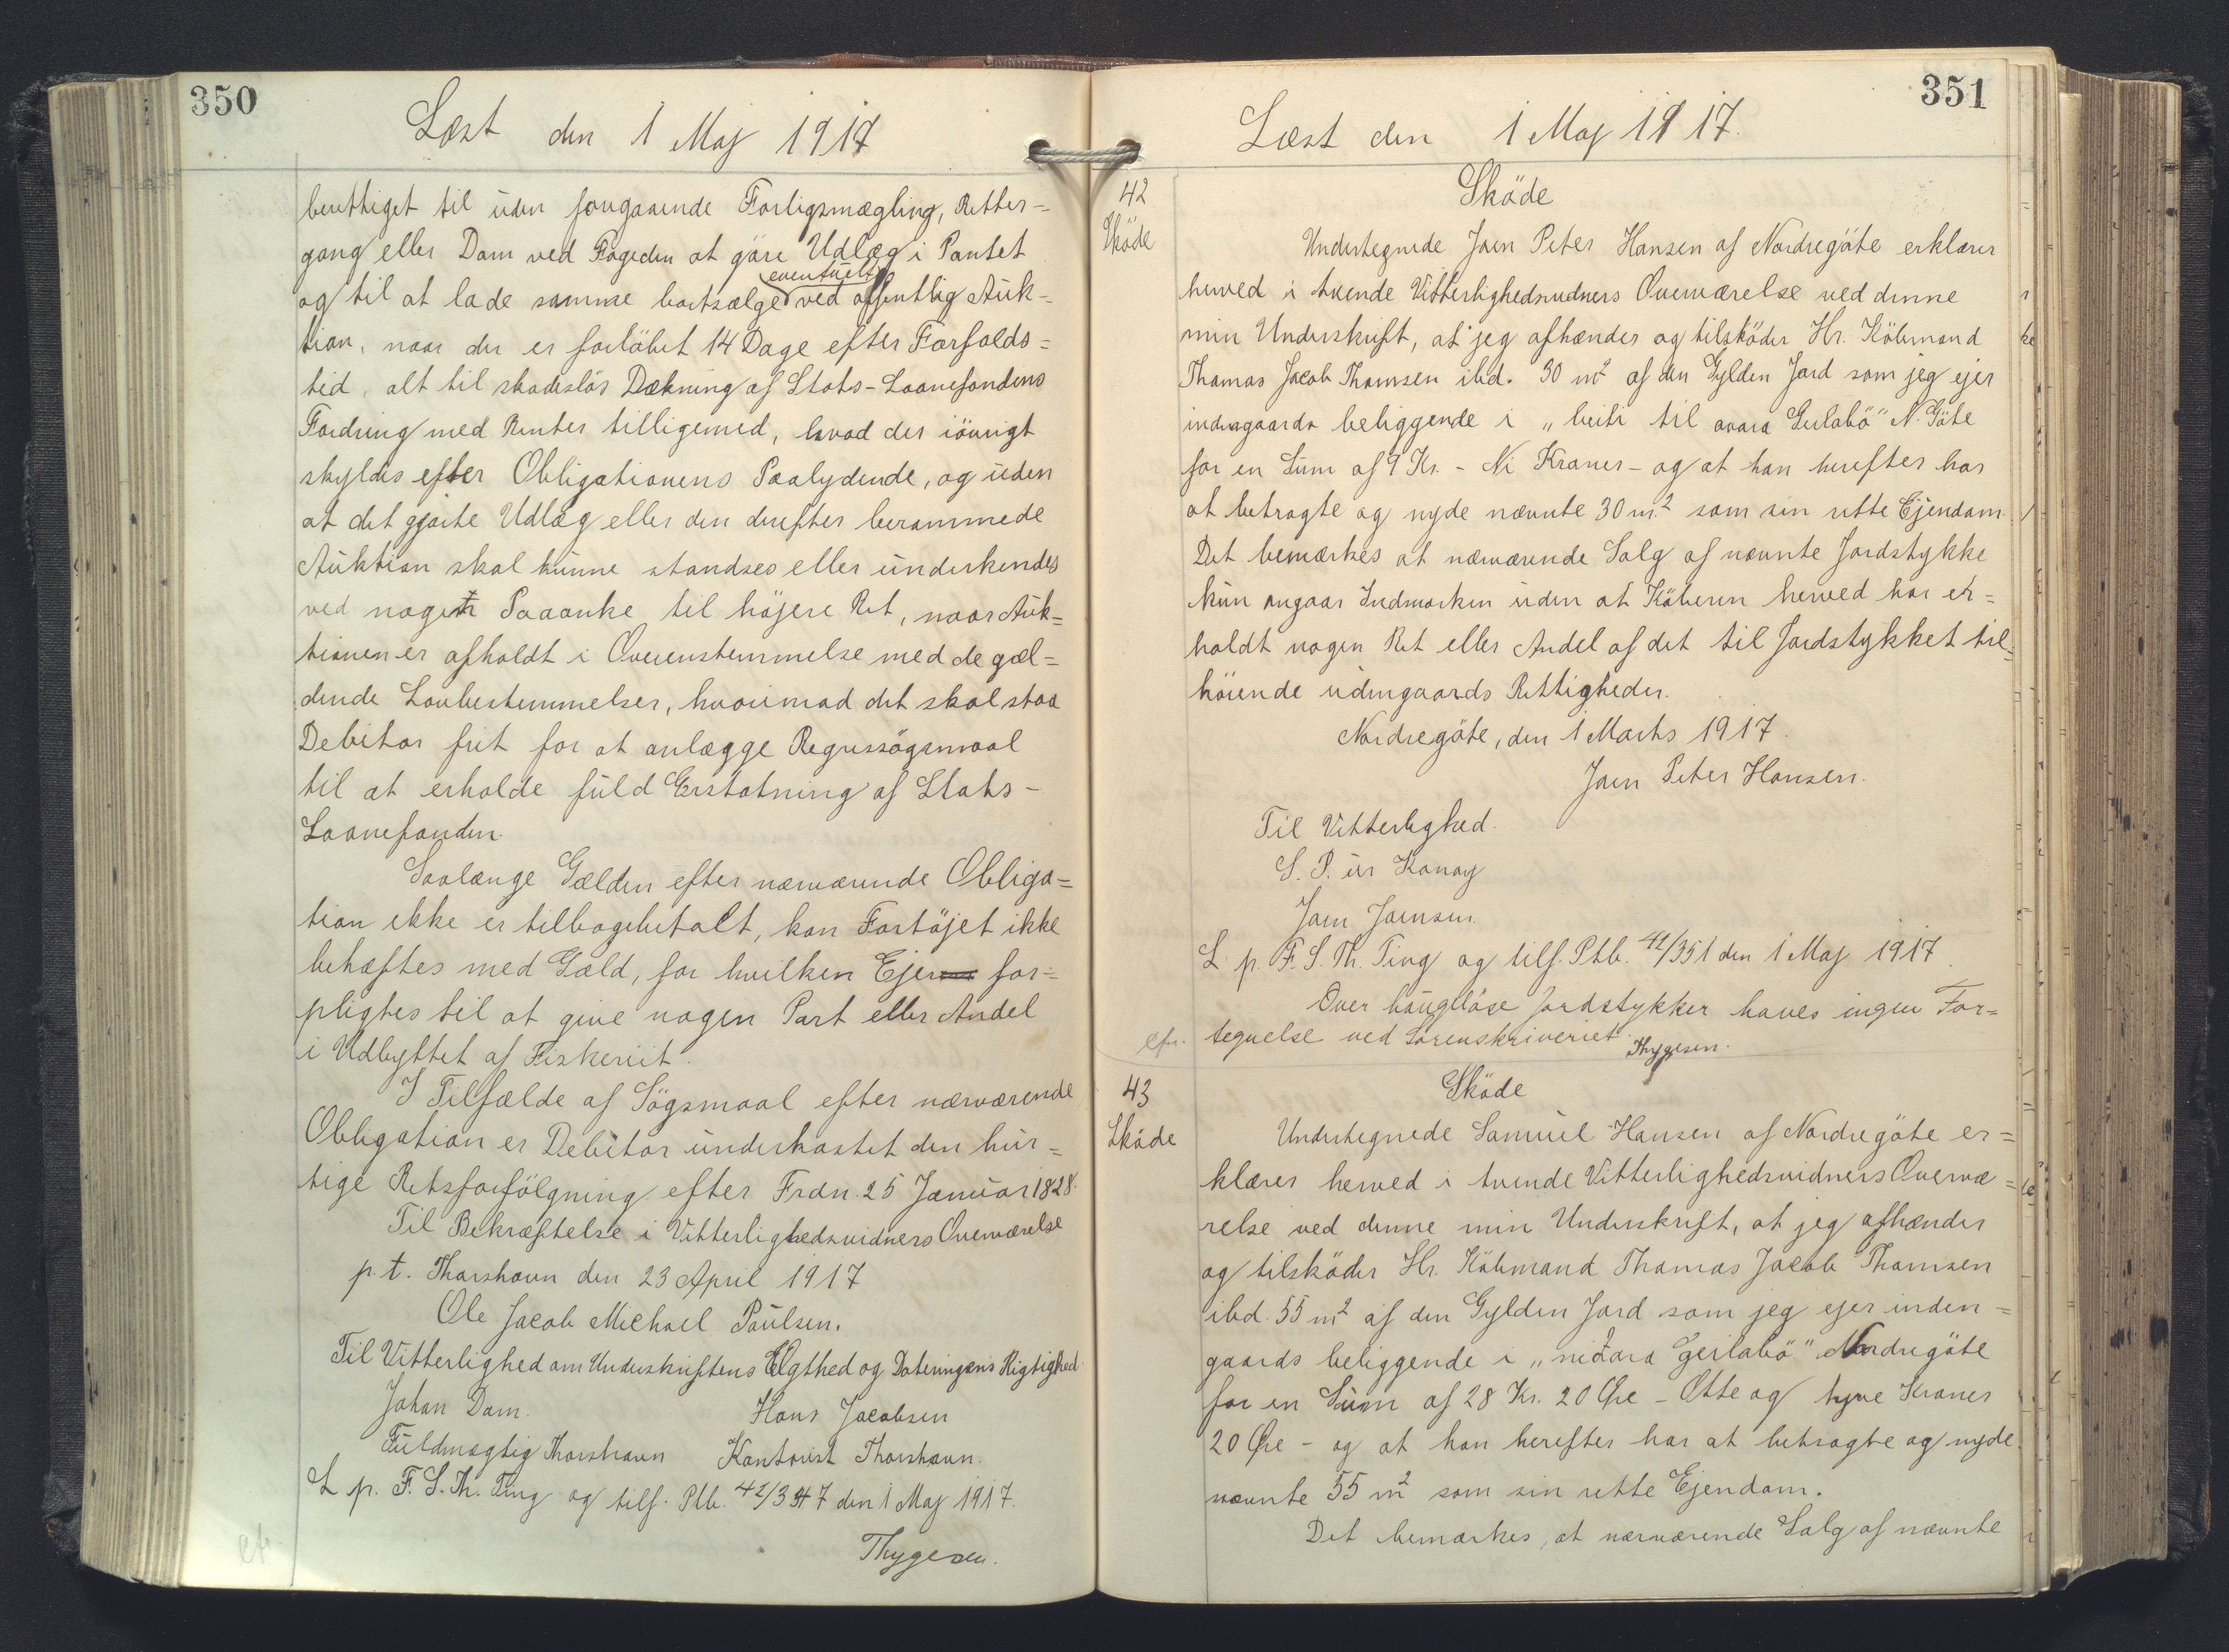 350
Læst den 1 Maj 1917
berettiget til uden foregaaende Forligsmægling, Retter-
gang eller Dom ved Fogeden at göre Udlæg i Pantet
eventuelt
og til at lade samme bortsælge ved offentlig Auk-
tion, naar der er forlöbet 14 Dage efter Forfalds=
tid, alt til skadeslös Dækning af Stats-Laanefondens
Fordring med Renter tilligemed, hvad der iövrigt
skyldes efter Obligationens Paalydende, og uden
at det gjorte Udlæg eller den derefter berammede
Auktion skal kunne standses eller underkendes
ved nogen Paaanke til höjere Ret, naar Auk=
tionen er afholdt i Overenstemmelse med de gæl=
dende Lovbestemmelser, hvorimod det skal staa
Debitor frit for at anlægge Regressögsmaal
til at erholde fuld Erstatning af Stats-
Laanefonden.
Saalænge Gælden efter nærværende Obliga=
tion ikke er tilbagebetalt, kan Fartöjet ikke
behæftes med Gæld, for hvilken Ejer for=
pligtes til at give nogen Part eller Andel
i Udbyttet af Fiskeriit.
I Tilfælde af Sögsmaal efter nærværende
Obligation er Debitor underkastet den hur=
tige Retsforfölgning efter Frdn. 25 Januar 1828.
Til Bekræftelse i Vitterlighedsvidners Overværelse
p.t. Thorshavn den 23 April 1917
Ole Jacob Michael Poulsen.
Til Vitterlighed om Underskriftens Ægthed og Dateringens Rigtighed.
Johan Dam. Hans Jacobsen
Fuldmægtig Thorshavn Kontorist Thorshavn.
L p. F. S. Th. Ting og tilf. Ptb. 42/347 den 1 Maj 1917.
Thygesen.
cfr.
351
Læst den 1 Maj 1917.
42
Sköde
Sköde
Undertegnede Joen Peter Hansen af Nordregöte erklærer
herved i tvende Vitterlighedsvidners Overværelse ved denne
min Underskrift, at jeg afhænder og tilsköder Hr. Köbmand
Thomas Jacob Thomsen ibd. 30 m2 af den Gylden Jord som jeg ejer
indengaards beliggende i „beiti til ovara Geilabö" N. Göte
for en Sum af 9 Kr. - Ni Kroner - og at han herefter har
at betragte og nyde nævnte 30 m.2 som sin rette Ejendom.
Det bemærkes at nærværende Salg af nævnte Jordstykke
kun angaar Indmarken uden at Köberen herved har er=
holdt nogen Ret eller Andel af det til Jordstykket til=
hörende udengaards Rettigheder.
Nordregöte, den 1 Marts 1917.
Joen Peter Hansen.
Til Vitterlighed.
S. P. úr Konoy
Joen Joensen
L. p. F. S. Th. Ting og tilf. Ptb. 42/351 den 1 Maj 1917.
Over haugelöse Jordstykker haves ingen For=
cfr. tegnelse ved Sorenskriveriet. Thygesen.
43
Sköde
Sköde
Undertegnede Samuel Hansen af Nordregöte er=
klærer herved i tvende Vitterlighedsvidners Overvæ=
relse ved denne min Underskrift, at jeg afhænder
og tilsköder Hr. Köbmand Thomas Jacob Thomsen
ibd. 55 m2 af den Gylden Jord som jeg ejer inden=
gaards beliggende i „niðara Geilabö" Nordregöte
for en Sum af 28 Kr. 20 Øre - Otte og tyve Kroner
20 Øre - og at han herefter har at betragte og nyde
nævnte 55 m2 som sin rette Ejendom.
Det bemærkes, at nærværende Salg af nævnte